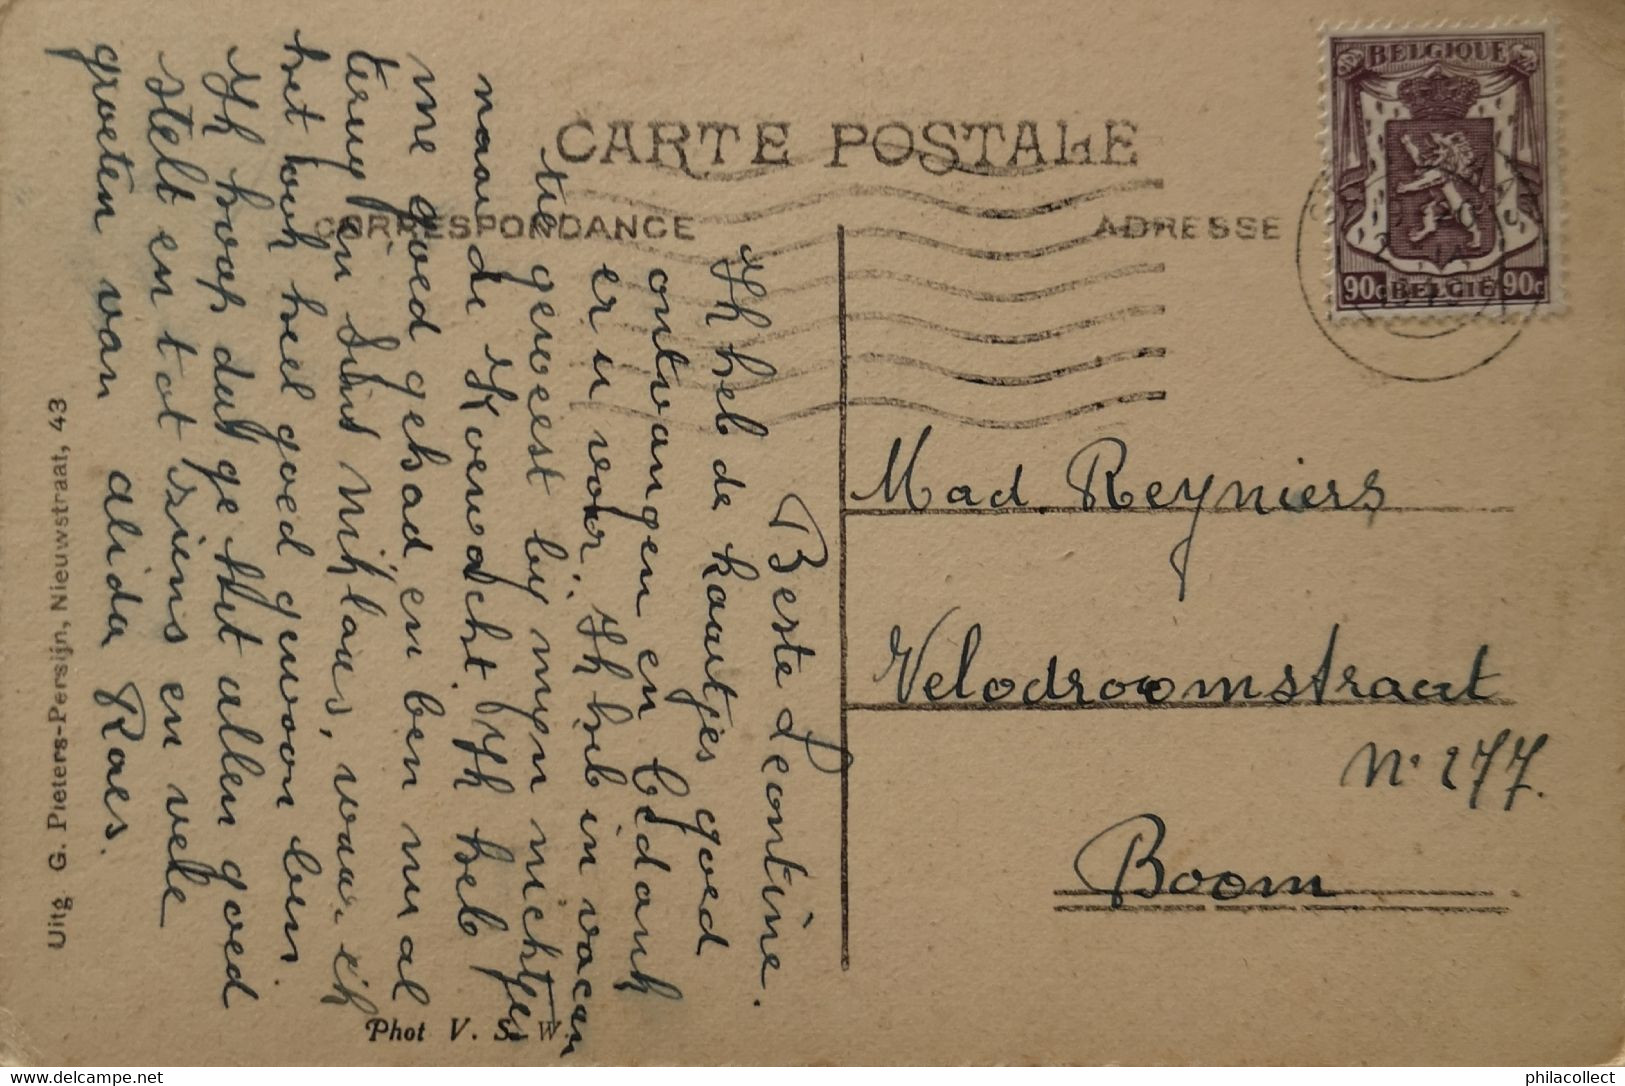 CARTE POSTALE
CORRESPONDANCE
ADRESSE
BELGIQUE
90c BELGIË 90c
Beste Leontine.
Ik heb de kaartjes goed
ontvangen en bedank
er u voor. Ik heb in vacan
tie geweest bij mijn nichtjes
naar de Koewacht. Ik heb
me goed gehad en ben nu al
terug in Sint Niklaas, waar ik
het ook heel goed gewoon ben.
Ik hoop dat ge het allen goed
stelt en tot siens en vele
groeten van alida Raes.
Mad. Reyniers
Velodroomstraat
N° 277.
Boom
Uitg. G. Pieters-Persijn, Nieuwstraat, 43
Phot V. S. W
philacollect - delcampe.net